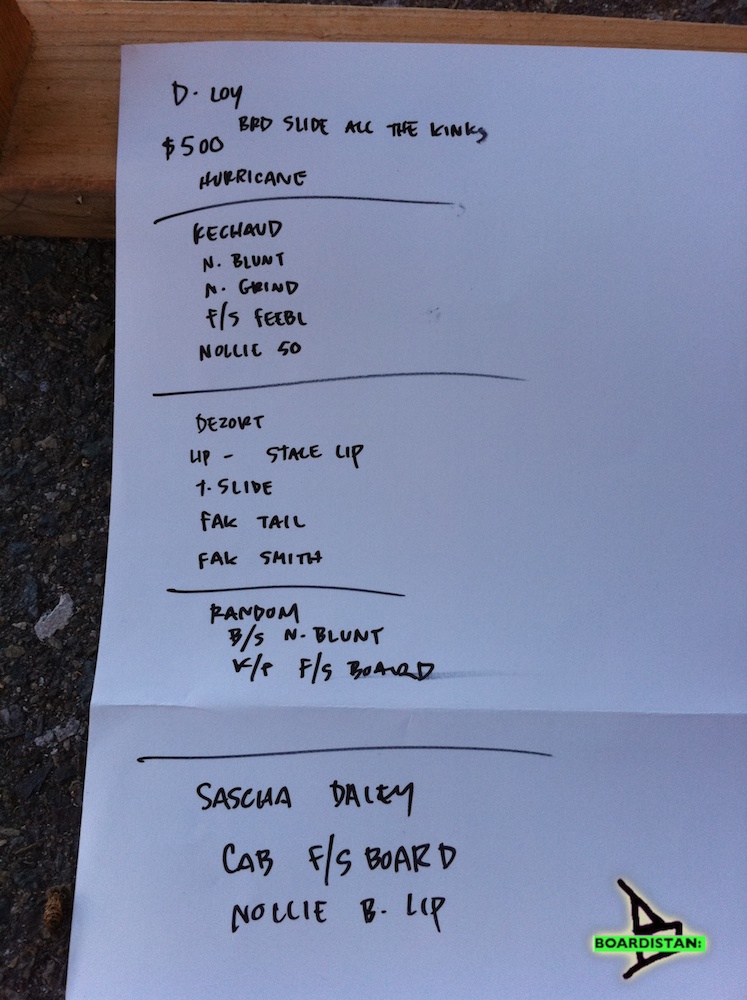 D. LOY
BRD SLIDE ALL THE KINKS
$500
HURRICANE
KECHAUD
N. BLUNT
N. GRIND
F/S FEEBL
NOLLIE 50
DEZORT
LIP - STALE LIP
T. SLIDE
FAK TAIL
FAK SMITH
RANDOM
B/S N. BLUNT
K/P F/S BOARD
SASCHA DALEY
CAB F/S BOARD
NOLLIE B. LIP
BOARDISTAN: